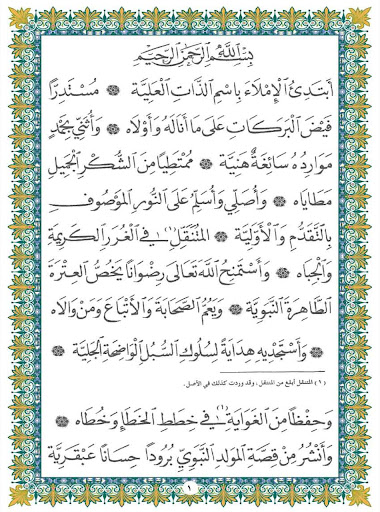 بِسْمِ اللَّهِ الرَّحْمَٰنِ الرَّحِيمِ
أَبْتَدِئُ الْإِمْلَاءَ بِاسْمِ الذَّاتِ الْعَلِيَّةِ ۞ مُسْتَدِرًّا
فَيْضَ الْبَرَكَاتِ عَلَى مَا أَنَالَهُ وَأَوْلَاهُ ۞ وَأُثَنِّي بِحَمْدٍ
مَوَارِدُهُ سَائِغَةٌ هَنِيَّة ۞ مُمْتَطِيًا مِنَ الشُّكْرِ الْجَمِيلِ
مَطَايَاه ۞ وَأُصَلِّي وَأُسَلِّمُ عَلَى النُّورِ الْمَوْصُوفِ
بِالتَّقَدُّمِ وَالْأَوَّلِيَّة ۞ الْمُتَنَقِّلِ(١) فِي الْغُرَرِ الْكَرِيمَةِ
وَالْجِبَاه ۞ وَأَسْتَمْنِحُ اللَّهَ تَعَالَى رِضْوَانًا يَخُصُّ الْعِتْرَةَ
الطَّاهِرَةَ النَّبَوِيَّة ۞ وَيَعُمُّ الصَّحَابَةَ وَالْأَتْبَاعَ وَمَنْ وَالَاه
۞ وَأَسْتَجْدِيهِ هِدَايَةً لِسُلُوكِ السُّبُلِ الْوَاضِحَةِ الْجَلِيَّة ۞
(١) المتنقل أبلغ من المنتقل، وقد وردت كذلك في الأصل.
وَحِفْظًا مِنَ الْغَوَايَةِ فِي خِطَطِ الْخَطَإِ وَخُطَاه ۞
وَأَنْشُرُ مِنْ قِصَّةِ الْمَوْلِدِ النَّبَوِيِّ بُرُودًا حِسَانًا عَبْقَرِيَّة
١